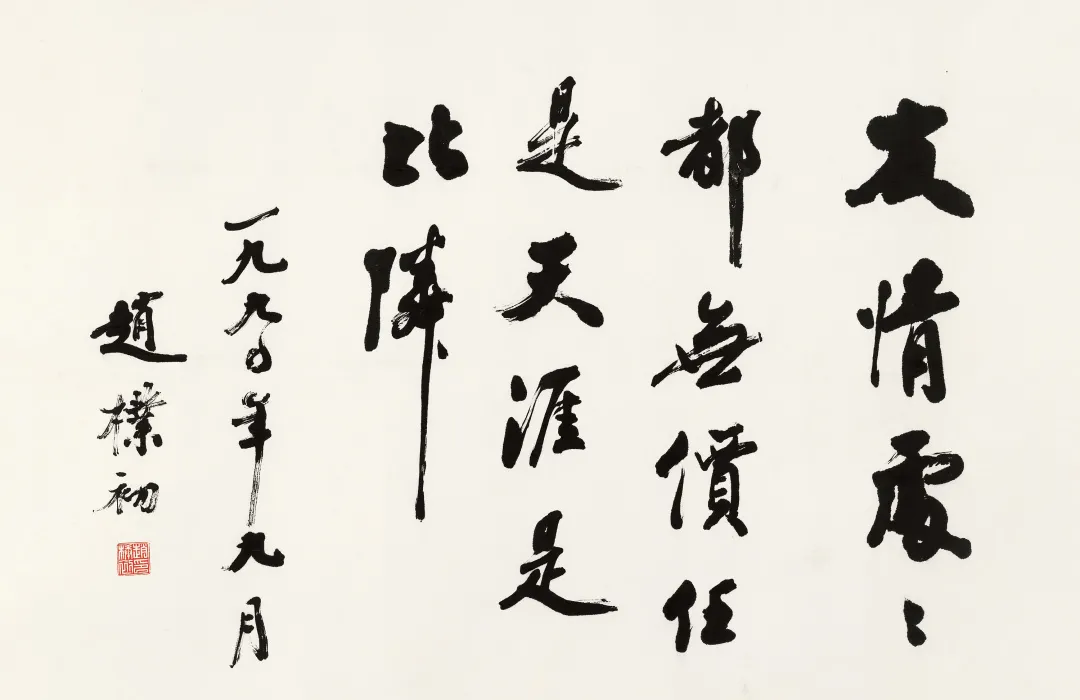 友情處〻
都無價任
是天涯是
比隣
一九九〇年九月
趙樸初